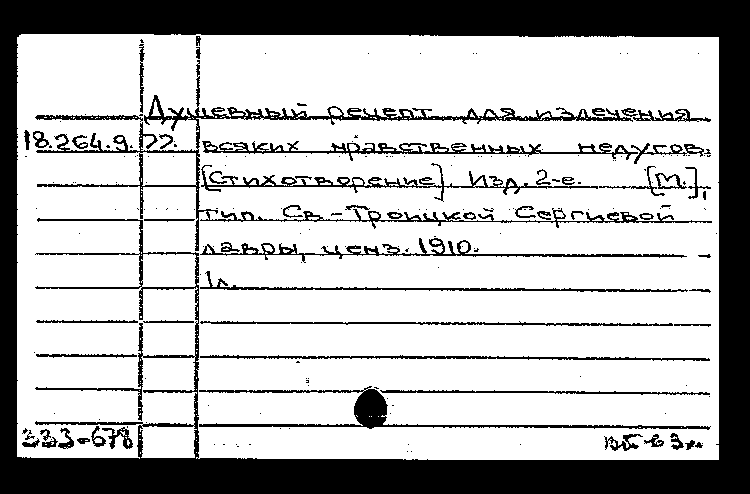 Душевный рецепт для излечения
18.264.9.22. всяких нравственных недугов.
[Стихотворение]. Изд. 2-е. [М.],
тип. Св-Троицкой Сергиевой
лавры, ценз. 1910.
1л.
333-678